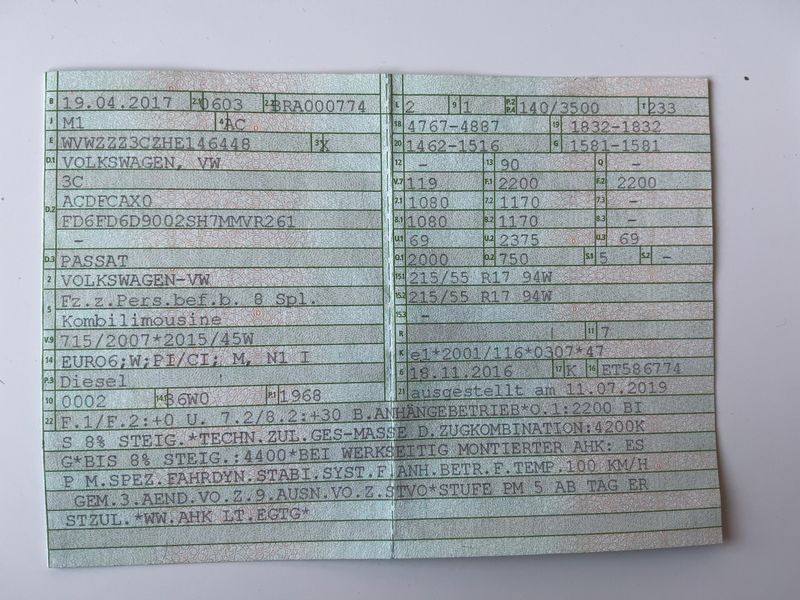 B 19.04.2017 2.1 0603 2.2 BRA000774
J M1 4 AC
E WVWZZZ3CZHE146448 3 X
D.1 VOLKSWAGEN, VW
3C
D.2 ACDFCAX0
FD6FD6D9002SH7MMVR261
-
D.3 PASSAT
2 VOLKSWAGEN-VW
5 Fz.z.Pers.bef.b. 8 Spl.
Kombilimousine
V.9 715/2007*2015/45W
14 EURO6;W;PI/CI; M, N1 I
P.3 Diesel
10 0002 14.1 36W0 P.1 1968
L 2 9 1 P.2 P.4 140/3500 T 233
18 4767-4887 19 1832-1832
20 1462-1516 G 1581-1581
12 - 13 90 Q -
V.7 119 F.1 2200 F.2 2200
7.1 1080 7.2 1170 7.3 -
8.1 1080 8.2 1170 8.3 -
U.1 69 U.2 2375 U.3 69
O.1 2000 O.2 750 S.1 5 S.2 -
15.1 215/55 R17 94W
15.2 215/55 R17 94W
15.3 -
R 11 7
K e1*2001/116*0307*47
6 18.11.2016 17 K 16 ET586774
21 ausgestellt am 11.07.2019
22 F.1/F.2:+0 U. 7.2/8.2:+30 B.ANHÄNGEBETRIEB*O.1:2200 BI
S 8% STEIG.*TECHN.ZUL.GES-MASSE D.ZUGKOMBINATION:4200K
G*BIS 8% STEIG.:4400*BEI WERKSEITIG MONTIERTER AHK: ES
P M.SPEZ.FAHRDYN.STABI.SYST.F.ANH.BETR.F.TEMP.100 KM/H
GEM.3.AEND.VO.Z.9.AUSN.VO.Z.STVO*STUFE PM 5 AB TAG ER
STZUL.*WW.AHK LT.EGTG*